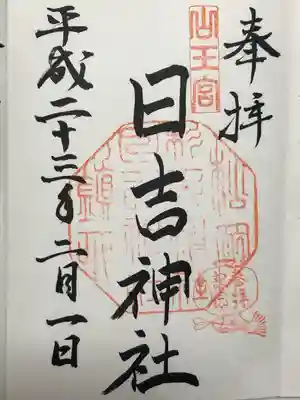 奉拝
山王宮
日吉神社
平成二十三年二月一日